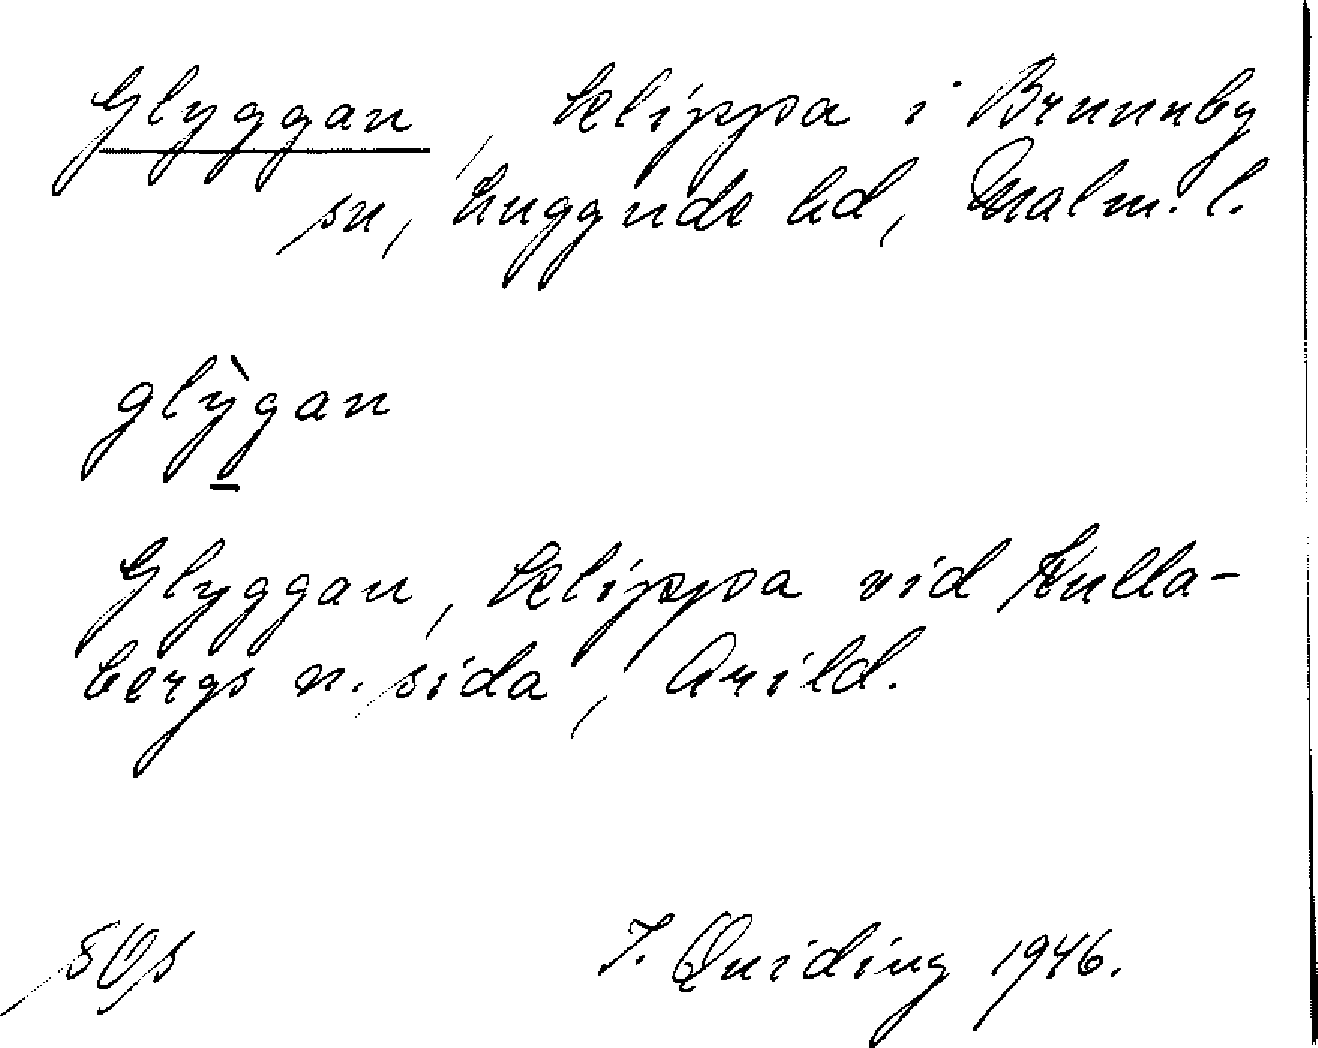 Glyggan, klippa i Brunnby
sn, Luggude hd, Malm. l.
glỳgan
Glyggan, klippa vid Kulla-
bergs n. sida, Arild.
Quiding 1946.